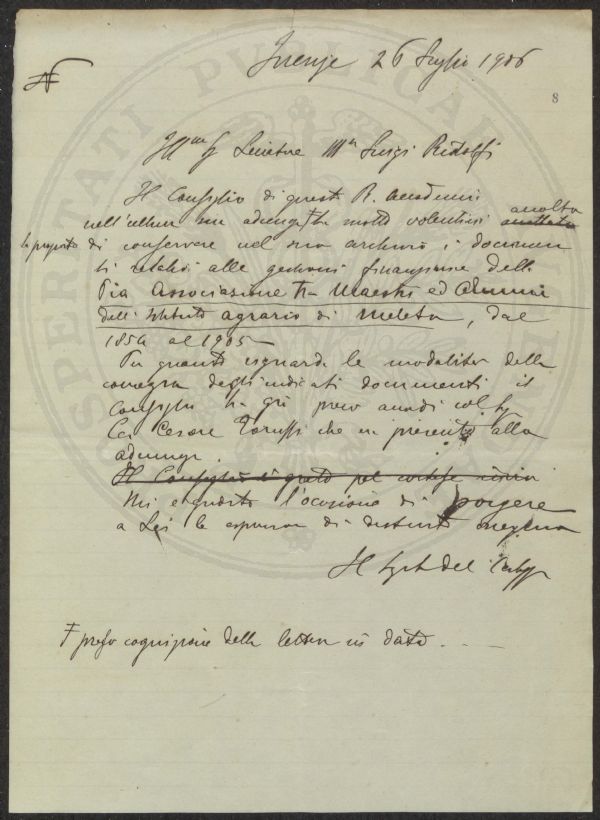 Firenze 26 Luglio 1906
8
Ill.mo Sig. Senatore M.se Luigi Ridolfi
Il Consiglio di questa R. Accademia
nell'ultima sua adunanza ha molto volentieri accolta
la proposta di conservare nel suo archivio i documen
ti relativi alle gestioni finanziarie della
Pia Associazione tra Maestri ed Alunni
dell'Istituto agrario di Meleto, dal
1854 al 1905
Per quanto riguarda le modalità della
consegna degli indicati documenti il
Consiglio ha già preso accordi col
Cesare Taruffi che era presente alla
adunanza.
Il Consiglio è grato pel cortese
Mi è gradita l'occasione di porgere
a Lei le espressioni di distinto ossequio
Il Segret del
preso cognizione della lettera in data . . .